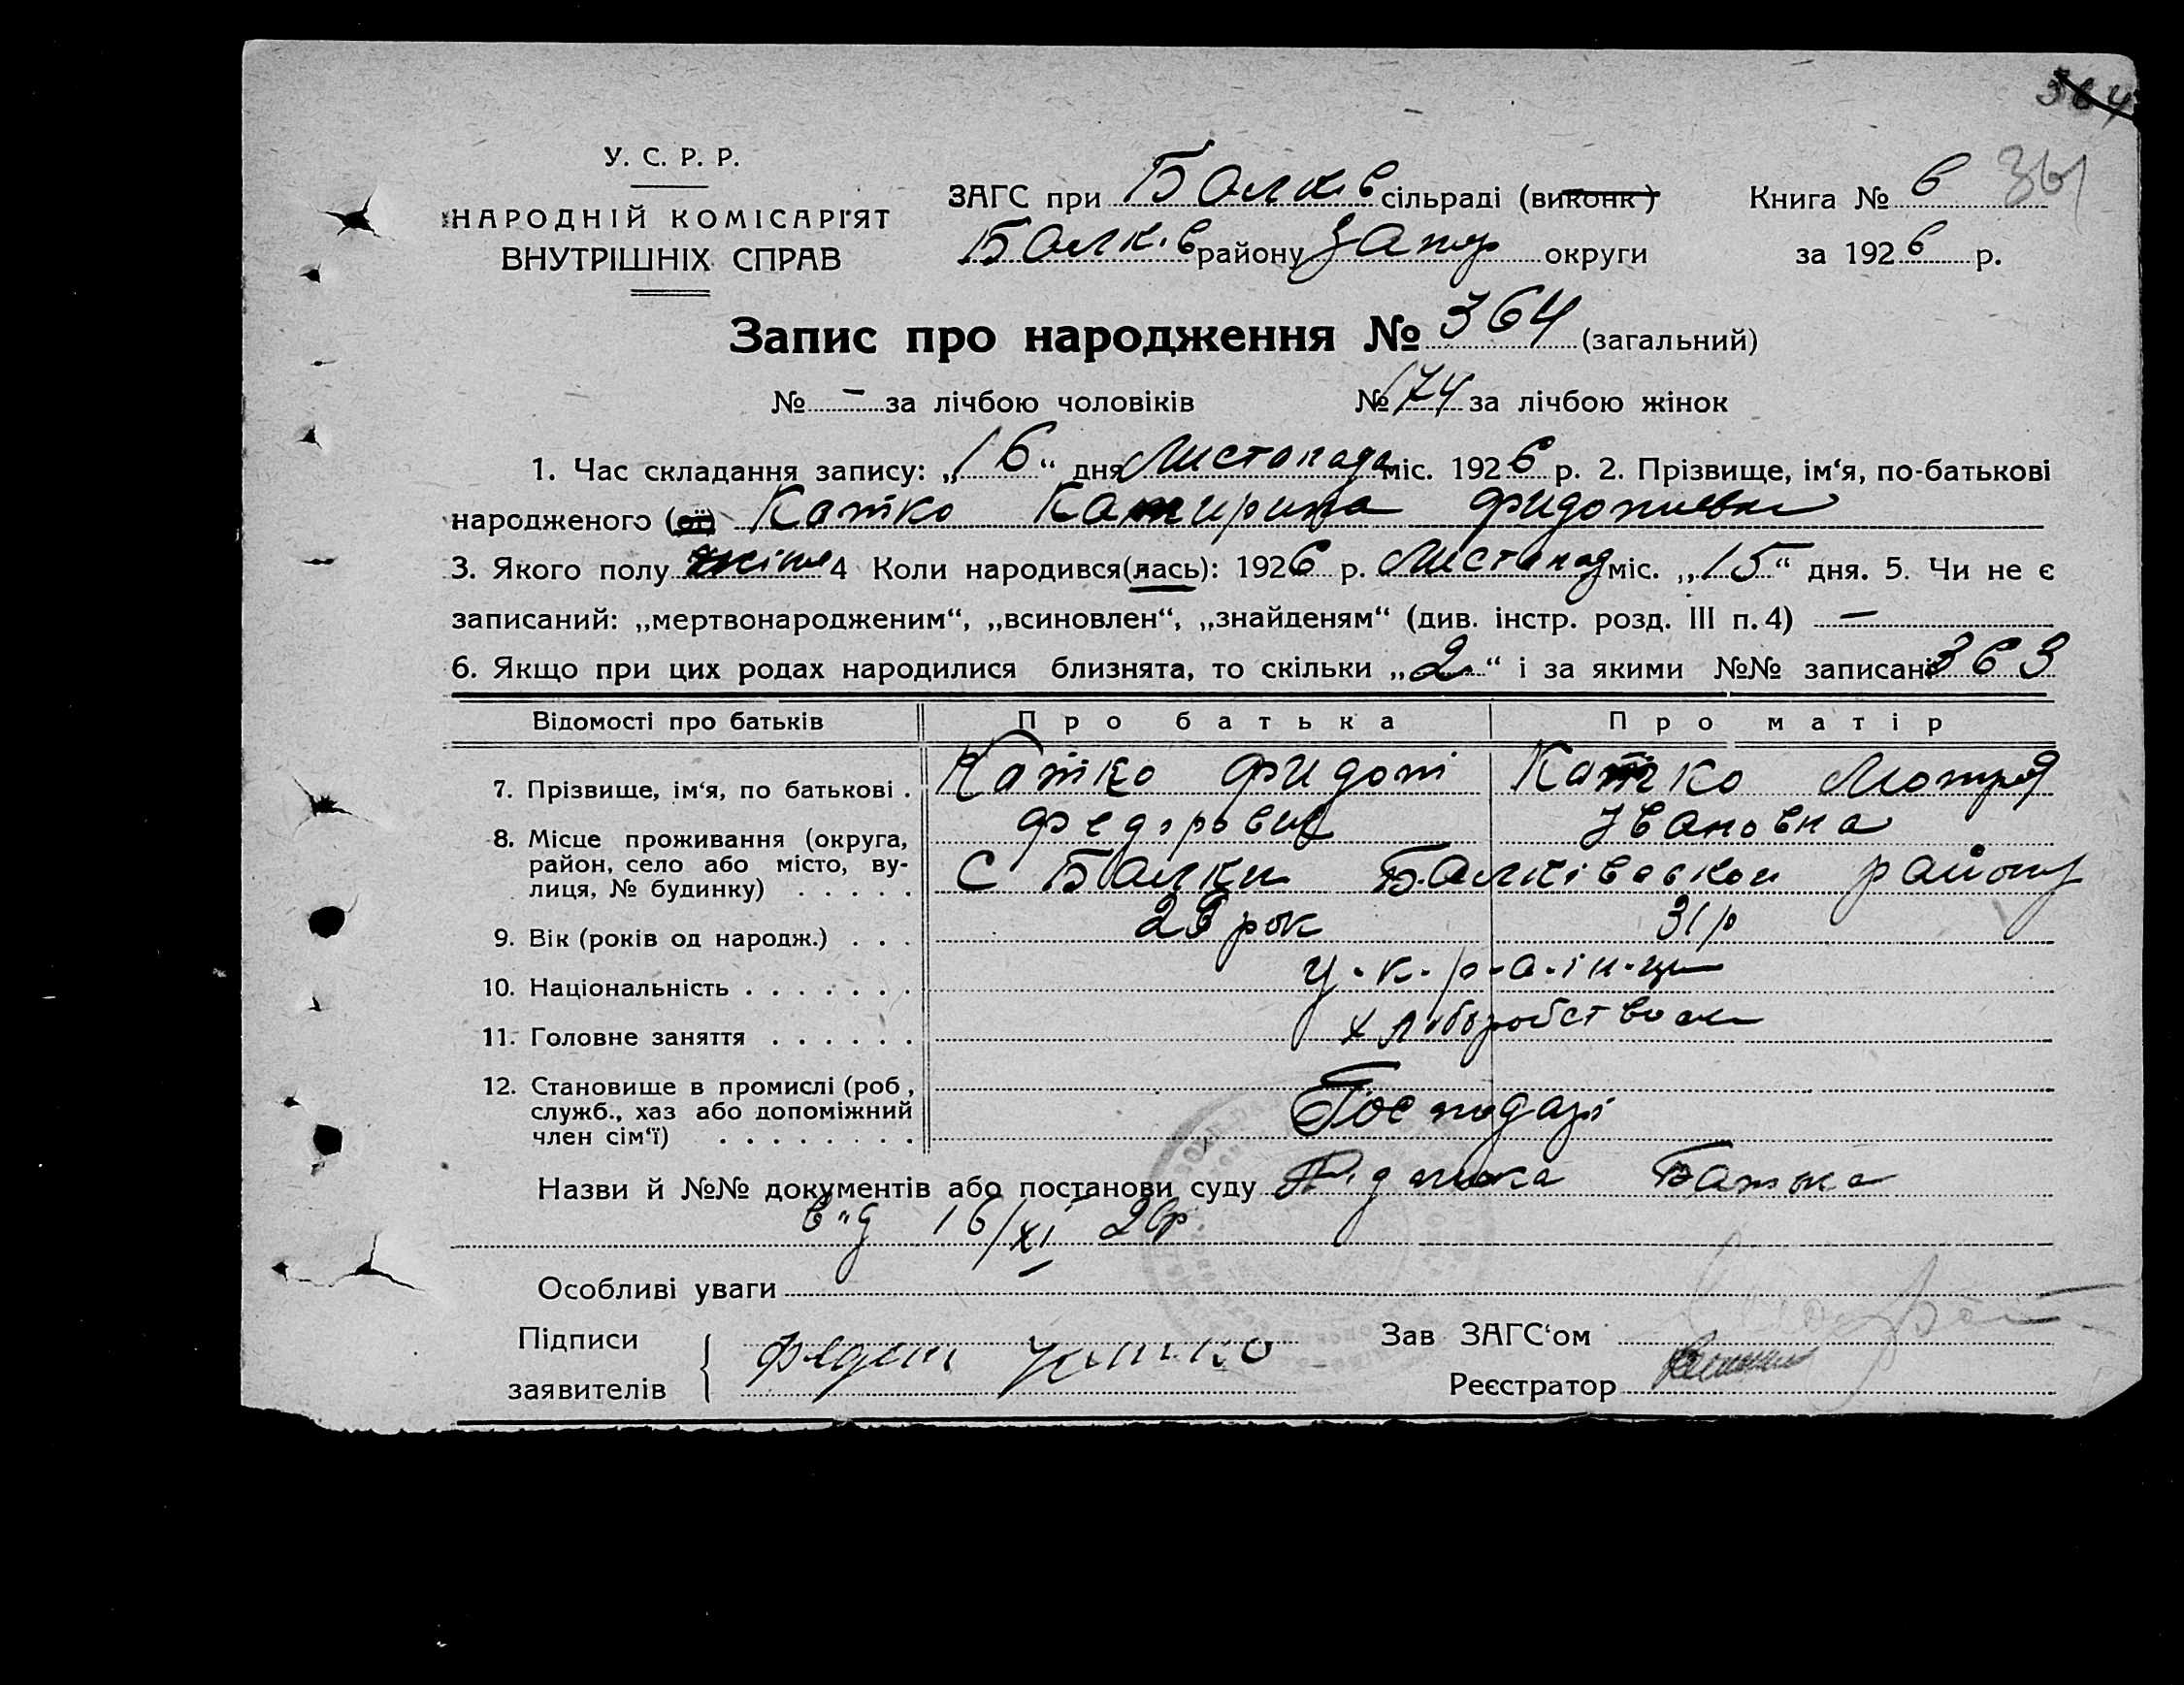 364
У. С. Р. Р.
НАРОДНІЙ КОМІСАРІЯТ
ВНУТРІШНІХ СПРАВ
ЗАГС при Балків сільраді (виконк)
Балк.в району Запор округи
Книга № 6
за 1926 р.
Запис про народження № 364 (загальний)
№ - за лічбою чоловіків № 174 за лічбою жінок
1. Час складання запису: „16“ дня Листопада міс. 1926 р. 2. Прізвище, ім‘я, по-батькові
народженого (ої) Катко Катирина Фидотивна
3. Якого полу жіноч 4 Коли народився(лась): 1926 р. Листопад міс. „15“ дня. 5. Чи не є
записаний: „мертвонародженим“, „всиновлен“, „знайденям“ (див. інстр. розд. III п. 4) —
6. Якщо при цих родах народилися близнята, то скільки „2“ і за якими №№ записані 363
Відомості про батьків Про батька Про матір
7. Прізвище, ім‘я, по батькові . Катко Фидот Катко Мотря
Федорович Івановна
8. Місце проживання (округа, район, село або місто, вулиця, № будинку) . . . . . С Балки Балківськой району
9. Вік (років од народж.) . . . рок 31 р
10. Національність . . . . . . . у-к-р-а-ін-ци
11. Головне заняття . . . . . . хліборобством
12. Становище в промислі (роб, служб., хаз або допоміжний член сім‘ї) . . . . . . . . Господарі
Назви й №№ документів або постанови суду Батька
від 16/XI 26р
Особливі уваги
Підписи
заявителів
Федот Катко
Зав ЗАГС‘ом
Реєстратор